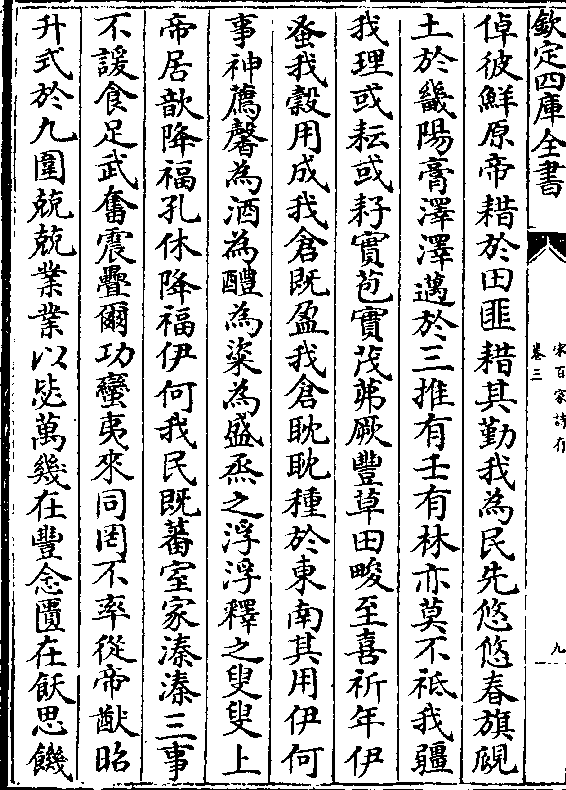 欽定四庫全書
宋百家詩存
卷三
九
倬彼鮮原帝耤於田匪耤其勤我為民先悠悠春旗覛
土於畿陽膏澤澤邁於三推有壬有林亦莫不祗我疆
我理或耘或耔實苞實茂茀厥豐草田畯至喜祈年伊
蚤我穀用成我倉既盈我倉眈眈種於東南其用伊何
事神薦馨為酒為醴為粢為盛烝之浮浮釋之叟叟上
帝居歆降福孔休降福伊何我民既蕃室家溱溱三事
不諼食足武奮震疊爾功蠻夷來同罔不率從帝猷昭
升式於九圍兢兢業業以毖萬幾在豐念匱在飫思饑